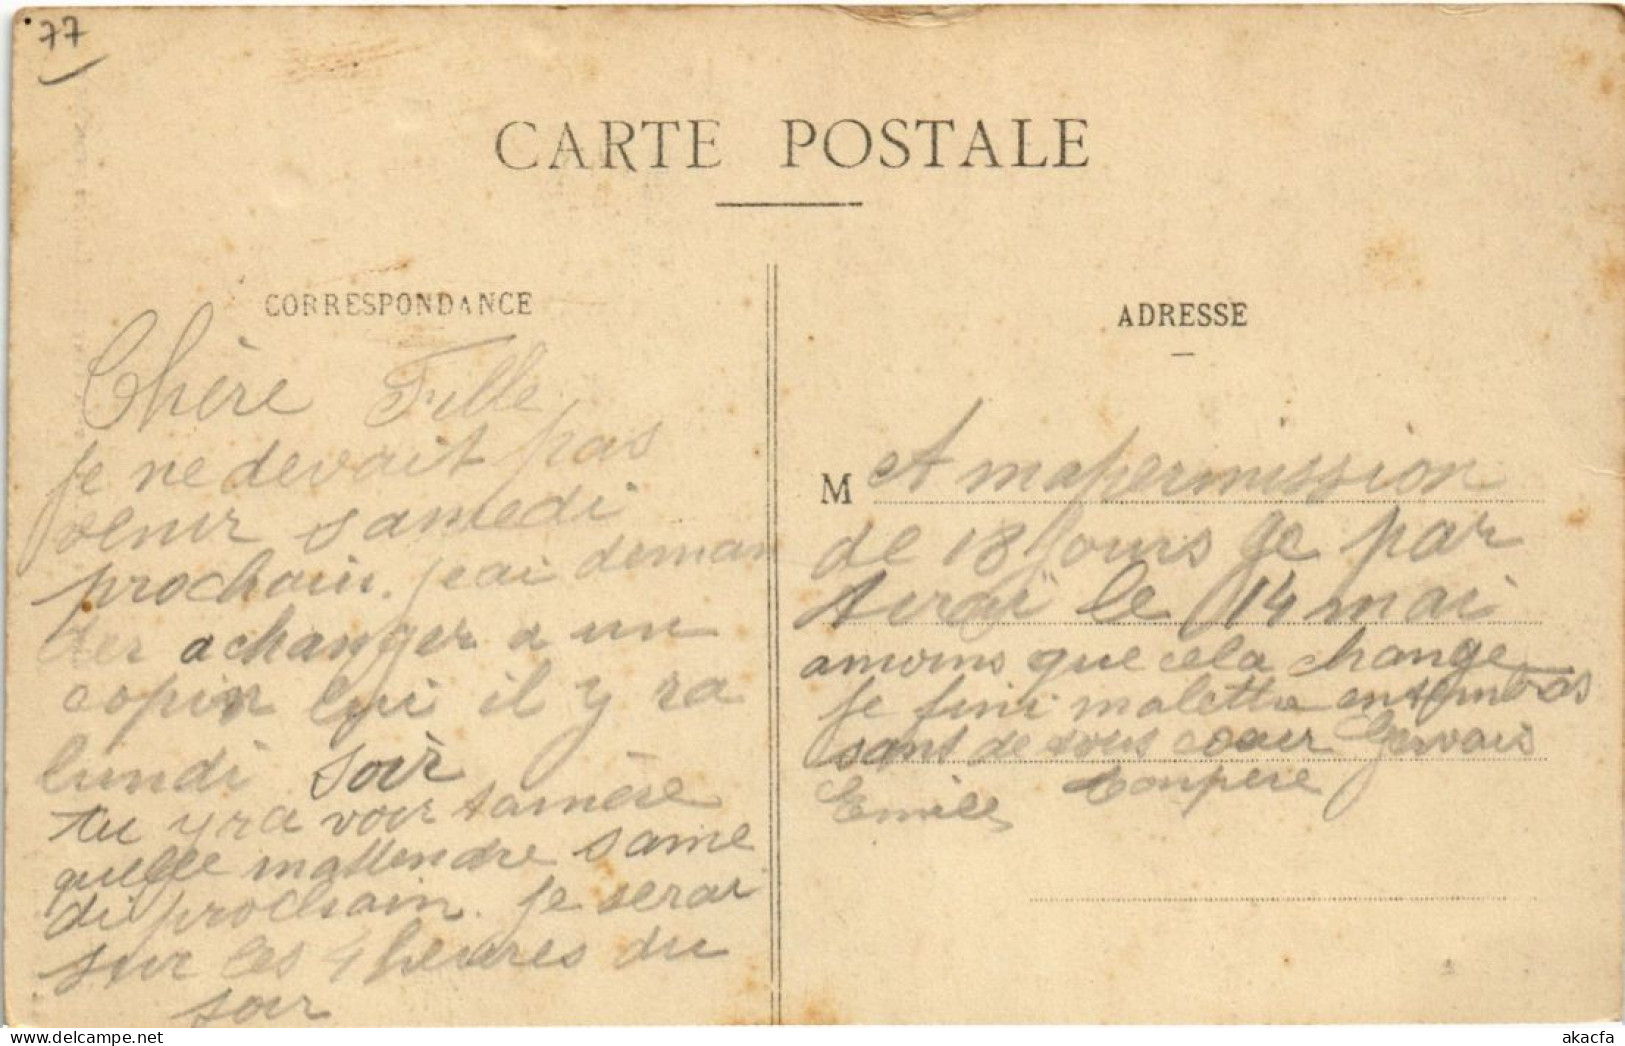 77
CARTE POSTALE
CORRESPONDANCE
Chère Fille
je ne devait pas
venir samedi
prochain. jeai deman
der achanger a un
copin lui il y ra
lundi soir
tu yra voir tamère
quelle mattendre same
di prochain. je serai
sur les 4 heures du
soir
ADRESSE
M A mapermission
de 18 jours je par
tirai le 14 mai
amoins que cela change
je fini malettre
sant de tous coeur Gervais
Emile Compère
akacfa